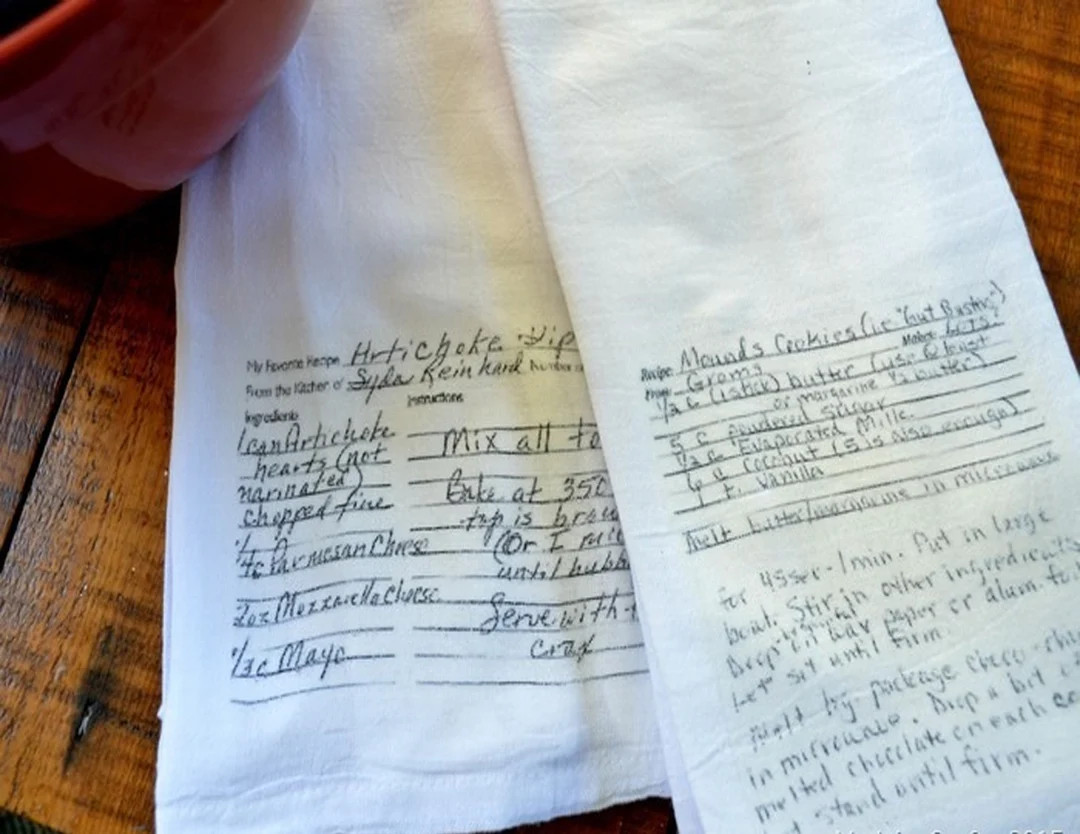 My Favorite Recipe Artichoke Dip
From the Kitchen of Syda Reinhard Number
Ingredients
Instructions
1 can Artichoke
hearts (not
marinated)
chopped fine
Parmesan Cheese
2oz Mozzarella Cheese
1/3c Mayo
Mix all to
Bake at 350
top is brow
(Or I mi
until bubb
Serve with
crax
Recipe: Mounds Cookies (ie "Gut Bustin")
From: Groms Makes: LOTS!
1/2 c (1 stick) butter (use @ least
or margarine 1/2 butter)
5 c powdered sugar
1/2 c Evaporated Milk
6 c Coconut (5 is also enough)
1 t. Vanilla
Melt butter/margarine in microwave
for 45sec-1min. Put in large
bowl. Stir in other ingredients
Drop on wax paper or alum. foil
Let sit until firm.
Melt pkg package choco-chi
in microwave. Drop a bit of
melted chocolate on each co
stand until firm.